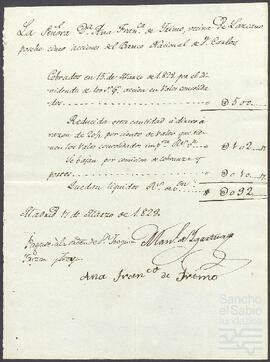 La Señora Dª Ana Franca de Feimo, vecina de Lazcano
por cinco acciones del Banco Nacional de Sn Carlos
Cobrados en 15 de Marzo de 1829 por el di-
videndo de acción en Vales consolida-
dos $500..
Reducida esta cantidad á dinero á
razon de por ciento de valor que tie-
nen los Vales consolidados 102..
Se bajan por comision de cobranza y
portes 010..
Quedan líquidos Rs de on $092
Madrid 17 de Marzo de 1829.
Páguese a la orden de Dn Joaquin
Manl de Ygartua
Ana Franca de Feimo
Sancho
el Sabio
fundazioa